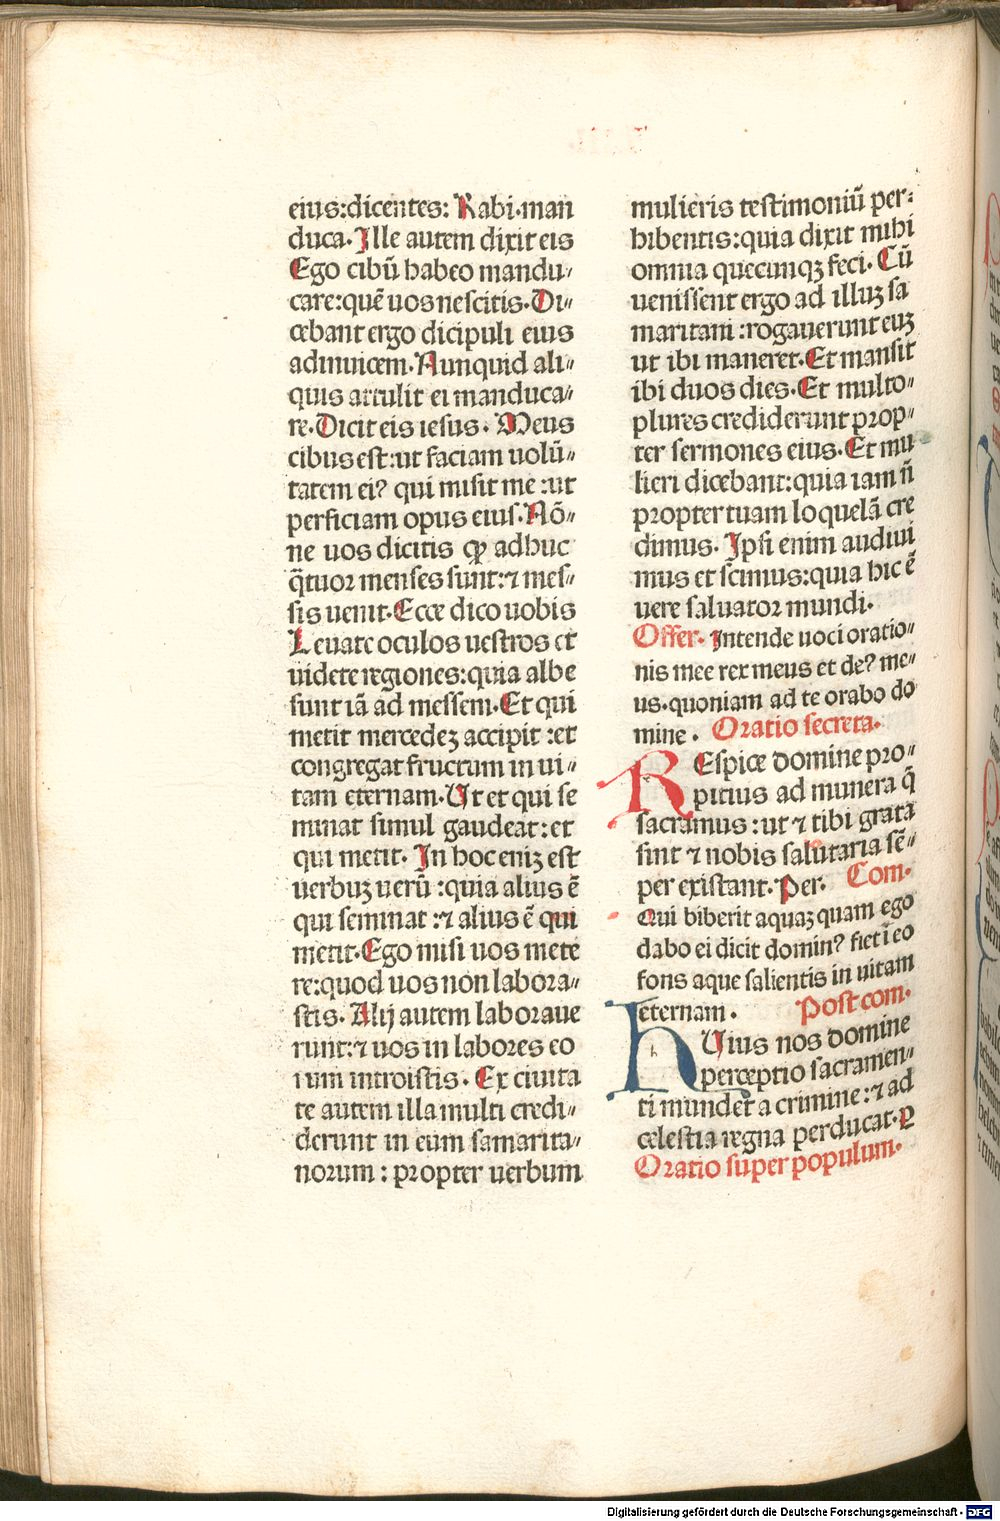 eius:dicentes: Rabi·man
duca. Ille autem dixit eis
Ego cibū habeo mandu-
care:quē uos nescitis. Di-
cebant ergo dicipuli eius
adinuicem. Nunquid ali-
quis attulit ei manduca-
re. Dicit eis iesus. Meus
cibus est:ut faciam uolū-
tatem eiꝰ qui misit me :ut
perficiam opus eius. Nō-
ne uos dicitis ꝙ adhuc
q̄tuor menses sunt:⁊ mes-
sis uenit. Ecce dico uobis
Leuate oculos uestros et
uidete regiones:quia albe
sunt iā ad messem. Et qui
metit mercedeꝫ accipit :et
congregat fructum in ui-
tam eternam. Ut et qui se
minat simul gaudeat: et
qui metit. In hoc eniꝫ est
uerbuꝫ uerū :quia alius ē
qui seminat :⁊ alius ē qui
metit. Ego misi uos mete
re:quod uos non labora-
stis. Alij autem laboraue
runt:⁊ uos in labores eo
rum introistis. Ex ciuita
te autem illa multi credi-
derunt in eum samarita-
norum : propter uerbum
mulieris testimoniū per-
hibentis:quia dixit mihi
omnia quecunqꝫ feci. Cū
uenissent ergo ad illuꝫ sa
maritani :rogauerunt euꝫ
ut ibi maneret. Et mansit
ibi duos dies. Et multo-
plures crediderunt prop-
ter sermones eius. Et mu
lieri dicebant:quia iam nō
propter tuam loquelā cre
dimus. Ipsi enim audiui
mus et scimus:quia hic ē
uere saluator mundi.
Offer. Intende uoci oratio-
nis mee rex meus et deꝰ me-
us.quoniam ad te orabo do
mine . Oratio secreta.
REspice domine pro-
pitius ad munera q̄
sacramus :ut ⁊ tibi grata
sint ⁊ nobis salutaria sē-
per existant. Per. Com.
Qui biberit aquaꝫ quam ego
dabo ei dicit dominꝰ fiet ī eo
fons aque salientis in uitam
eternam . Post com.
hUius nos domine
perceptio sacramen-
ti mundet a crimine :⁊ ad
celestia regna perducat. ꝑ
Oratio super populum.
Digitalisierung gefördert durch die Deutsche Forschungsgemeinschaft - DFG